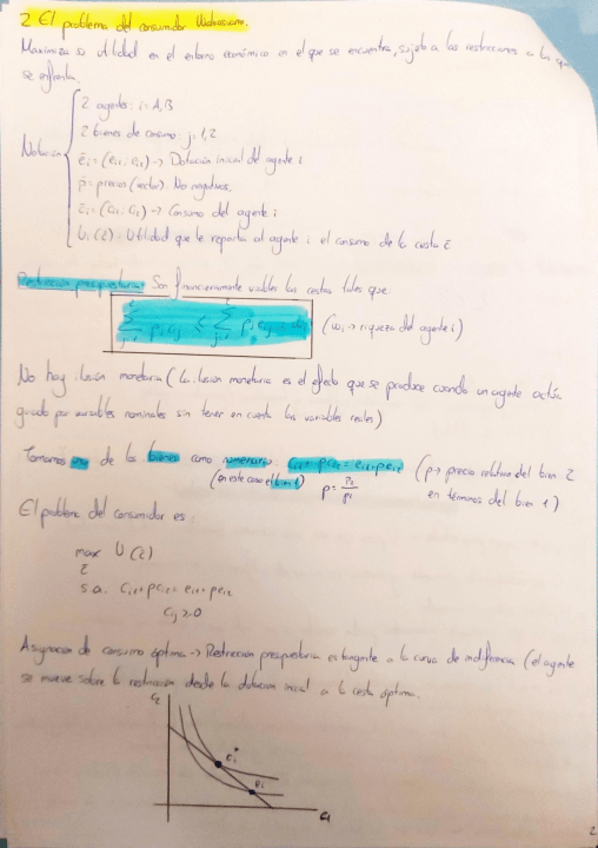 2 El problema del consumidor Walrasiano.
Maximiza su utilidad en el entorno económico en el que se encuentra, sujeto a las restricciones a las que
se enfrenta.
2 agentes: i=A,B
2 bienes de consumo: j=1,2
Notación
ēi=(ei1; ei2) → Dotación inicial del agente i
p̄=precios (vector). No negativos.
c̄i=(ci1; ci2) → Consumo del agente i
Ui(c̄). Utilidad que le reporta al agente i el consumo de la cesta c̄
Restricción presupuestaria: Son financieramente viables las cestas tales que:
∑ pj cij ≤ ∑ pj eij = wi (wi → riqueza del agente i)
No hay ilusión monetaria (La ilusión monetaria es el efecto que se produce cuando un agente actúa
guiado por variables nominales sin tener en cuenta las variables reales)
Tomamos uno de los bienes como numerario. ci1+pci2=ei1+pei2 (p→ precio relativo del bien 2
(en este caso el bien 1) p=p2/p1 en términos del bien 1)
El problema del consumidor es:
max U(c̄)
c̄
s.a. ci1+pci2=ei1+pei2
cij≥0
Asignación de consumo óptima → Restricción presupuestaria es tangente a la curva de indiferencia (el agente
se mueve sobre la restricción desde la dotación inicial a la cesta óptima.
c2
ci*
ei
c1
2